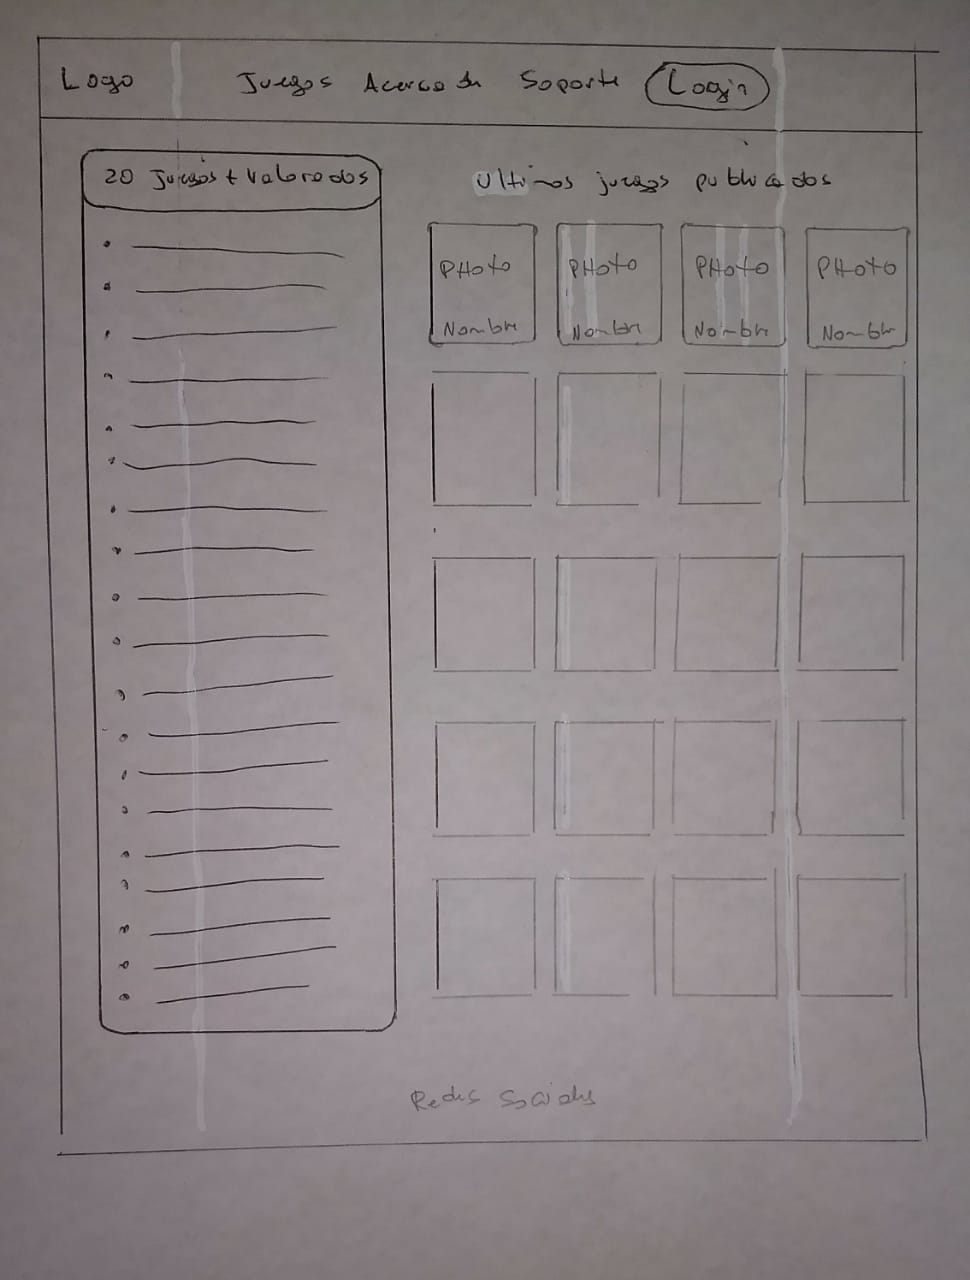 Logo Juegos Acerca de Soporte Login
20 Juegos + Valorados
Ultimos juegos publicados
PHoto PHoto PHoto PHoto
Nombre Nombre Nombre Nombre
Redes Sociales